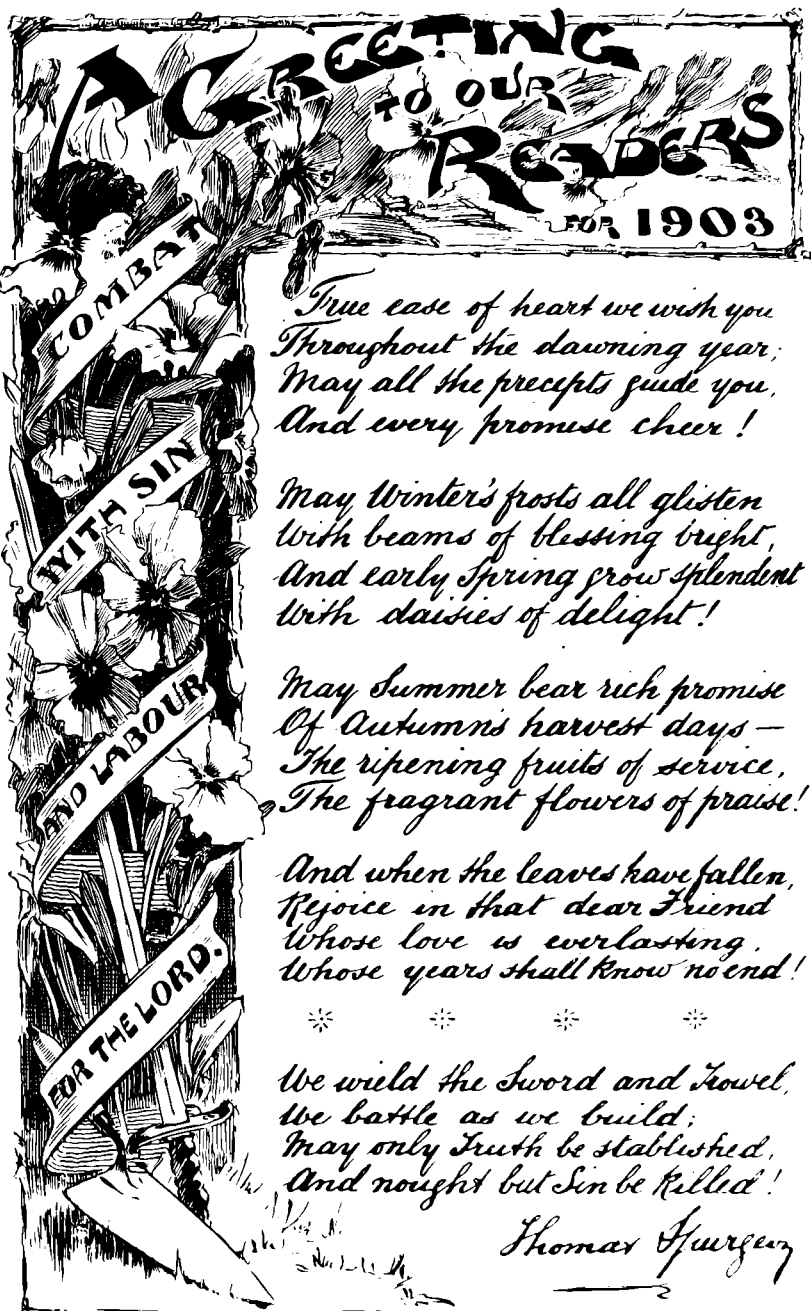 A GREETING
TO OUR
READERS
FOR 1903
COMBAT
WITH SIN
AND LABOUR
FOR THE LORD.
True ease of heart we wish you
Throughout the dawning year;
May all the precepts guide you,
And every promise cheer!
May Winter's frosts all glisten
With beams of blessing bright,
And early Spring grow splendent
With daisies of delight!
May Summer bear rich promise
Of Autumn's harvest days —
The ripening fruits of service,
The fragrant flowers of praise!
And when the leaves have fallen,
Rejoice in that dear Friend
Whose love is everlasting,
Whose years shall know no end!
We wield the Sword and Trowel,
We battle as we build;
May only Truth be stablished,
And nought but Sin be killed!
Thomas Spurgeon